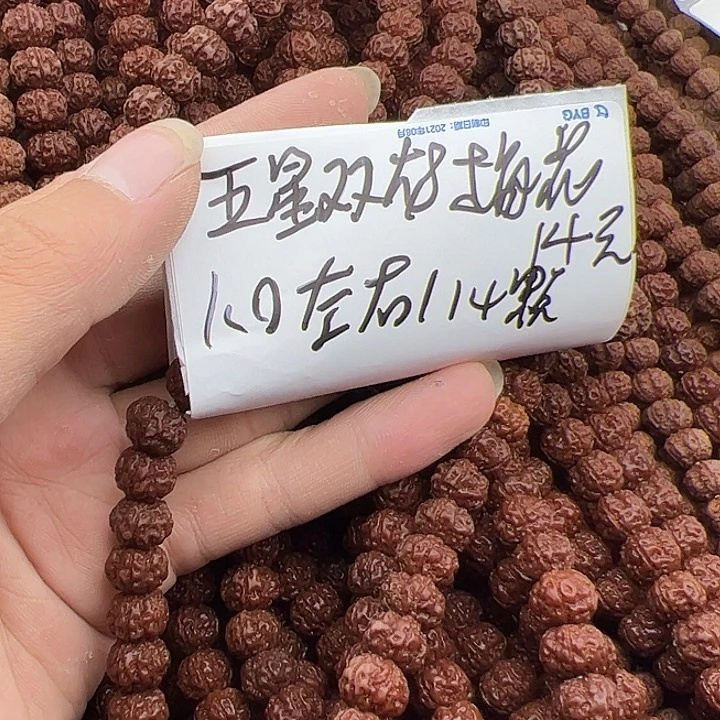 BYG
印刷日期：2021年06月
五星双龙梅花
14元
1.0左右114颗